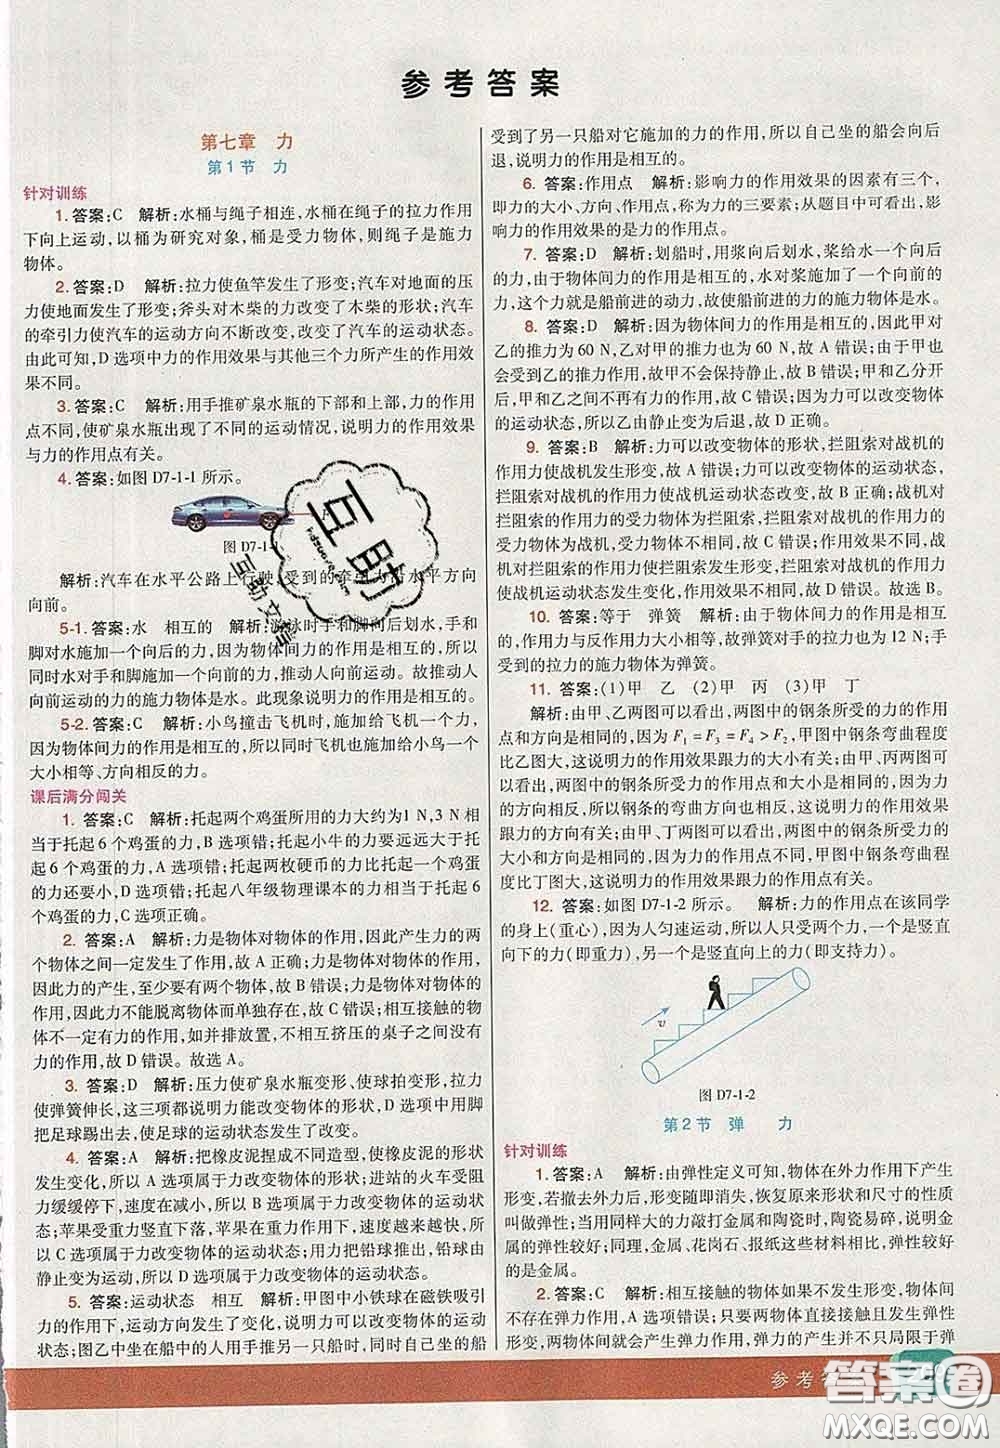 参考答案
第七章 力
第1节 力
针对训练
1. 答案:C 解析:水桶与绳子相连,水桶在绳子的拉力作用
下向上运动,以桶为研究对象,桶是受力物体,则绳子是施力
物体。
2. 答案:D 解析:拉力使鱼竿发生了形变;汽车对地面的压
力使地面发生了形变;斧头对木柴的力改变了木柴的形状;汽车
的牵引力使汽车的运动方向不断改变,改变了汽车的运动状态。
由此可知,D选项中力的作用效果与其他三个力所产生的作用效
果不同。
3. 答案:C 解析:用手推矿泉水瓶的下部和上部,力的作用
点不同,使矿泉水瓶出现了不同的运动情况,说明力的作用效果
与力的作用点有关。
4. 答案:如图 D7-1-1 所示。
图 D7-1-1
解析:汽车在水平公路上行驶,受到的牵引力沿水平方向
向前。
5-1. 答案:水 相互的 解析:游泳时手和脚向后划水,手和
脚对水施加一个向后的力,因为物体间力的作用是相互的,所以
同时水对手和脚施加一个向前的力,推动人向前运动。故推动人
向前运动的力的施力物体是水。此现象说明力的作用是相互的。
5-2. 答案:C 解析:小鸟撞击飞机时,施加给飞机一个力,
因为物体间力的作用是相互的,所以同时飞机也施加给小鸟一个
大小相等、方向相反的力。
课后满分闯关
1. 答案:C 解析:托起两个鸡蛋所用的力大约为1 N,3 N相
当于托起6个鸡蛋的力,B选项错;托起小牛的力要远远大于托
起6个鸡蛋的力,A选项错;托起两枚硬币的力比托起一个鸡蛋
的力还要小,D选项错;托起八年级物理课本的力,相当于托起6
个鸡蛋的力,C选项正确。
2. 答案:A 解析:力是物体对物体的作用,因此产生力的两
个物体之间一定发生了作用,故A正确;力是物体对物体的作用,
因此力的产生,至少要有两个物体,故B错误;力是物体对物体的
作用,因此力不能脱离物体而单独存在,故C错误;相互接触的物
体不一定有力的作用,如并排放置,不相互挤压的桌子之间没有
力的作用,故D错误。故选A。
3. 答案:D 解析:压力使矿泉水瓶变形、使球拍变形,拉力
使弹簧伸长,这三项都说明力能改变物体的形状,D选项用力
把足球踢出去,使足球的运动状态发生了改变。
4. 答案:A 解析:把橡皮泥捏成不同造型,使橡皮泥的形状
发生变化,所以A选项属于力改变物体的形状;进站的火车受阻
力缓缓停下,速度在减小,所以B选项属于力改变物体的运动状
态;苹果受重力竖直下落,苹果在重力作用下,速度越来越快,所
以C选项属于力改变物体的运动状态;用力把铅球推出,铅球由
静止变为运动,所以D选项属于力改变物体的运动状态。
5. 答案:运动状态 相互 解析:甲图中小铁球在磁铁吸引
力的作用下,运动方向发生了变化,说明力可以改变物体的运动
状态;图乙中坐在船中的人用手推另一只船时,同时自己坐的船
受到了另一只船对它施加的力的作用,所以自己坐的船会向后
退,说明力的作用是相互的。
6. 答案:作用点 解析:影响力的作用效果的因素有三个,
即力的大小、方向、作用点,称为力的三要素;从题目中可看出,影
响力的作用效果的是力的作用点。
7. 答案:D 解析:划船时,用桨向后划水,桨给水一个向后
的力,由于物体间力的作用是相互的,水对桨施加了一个向前的
力,这个力就是船前进的动力,故使船前进的力的施力物体是水。
8. 答案:D 解析:因为物体间力的作用是相互的,因此甲对
乙的推力为60 N,乙对甲的推力也为60 N,故A错误;甲和乙都
受到力的作用,故甲不会保持静止,故B错误;甲和乙分开
后,甲和乙之间不再有力的作用,故C错误;因为力可以改变物体
的运动状态,所以乙由静止变为运动,故D正确。
9. 答案:B 解析:力可以改变物体的形状,拦阻索对战机的
作用力使战机发生形变,故A错误;力可以改变物体的运动状态,
拦阻索对战机的作用力使战机运动状态改变,故B正确;战机对
拦阻索的作用力的受力物体为拦阻索,故C错误;因为拦阻索的
受力物体为战机,施力物体为拦阻索,故拦阻索的作用力使战机
的运动状态发生变化,作用效果不同,故D错误。故选B。
10. 答案:等于 弹簧 解析:由于物体间力的作用是相互
的,作用力与反作用力大小相等,故弹簧对手的拉力也为12 N;手
受到的拉力的施力物体为弹簧。
11. 答案:(1)甲 乙 (2)甲 丙 (3)甲 丁
解析:由甲、乙两图可以看出,两图中的钢条所受的力的作用
点和方向是相同的,因为 F₁=F₃=F₄>F₂,甲图中钢条弯曲程度
比乙图大,这说明力的作用效果跟力的大小有关;由甲、丙两图可
以看出,两图中的钢条所受力的作用点相同,力的大小相同,但力
的方向不同,所以钢条的弯曲方向也不相同,这说明力的作用效果
跟力的方向有关;由甲、丁两图可以看出,两图中的钢条所受力的
大小和方向是相同的,力的作用点不同,甲图中钢条弯曲程度
比丁图大,这说明力的作用效果跟力的作用点有关。
12. 答案:如图 D7-1-2 所示。 解析:力的作用点在该同学
的身上(重心),因为人匀速运动,所以人只受两个力,一个是竖直
向下的力(即重力),另一个是竖直向上的力(即支持力)。
v
图 D7-1-2
第2节 弹 力
针对训练
1. 答案:A 解析:由弹性定义可知,物体在外力作用下产生
形变,若撤去外力,形变随即消失,恢复原来形状和尺寸的性质
叫做弹性;当用同样大的力敲打金属和陶瓷时,陶瓷易碎,说明
金属的弹性较好;同理,金属、花岗石、报纸这些材料相比,弹性较好的
是金属。
2. 答案:C 解析:相互接触的物体如果不发生形变,物体间
不存在弹力作用,A选项错误;只要两物体直接接触且发生弹性
形变,两物体间就会产生弹力作用,弹力的产生并不只局限于弹
参考答
互助
互助文档
答案圈
MXQE.COM